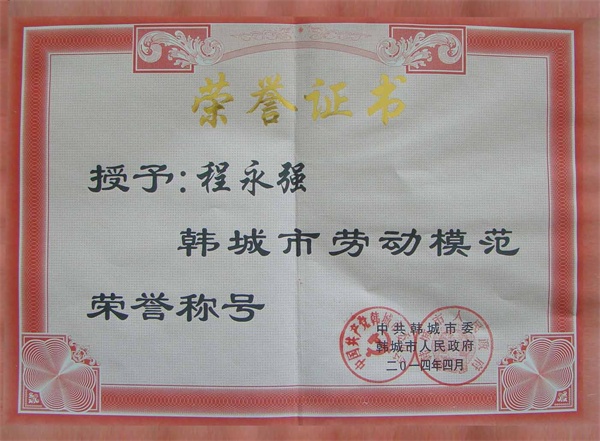 荣誉证书
授予：程永强
韩城市劳动模范
荣誉称号
中共韩城市委
韩城市人民政府
二〇一四年四月
中国共产党韩城